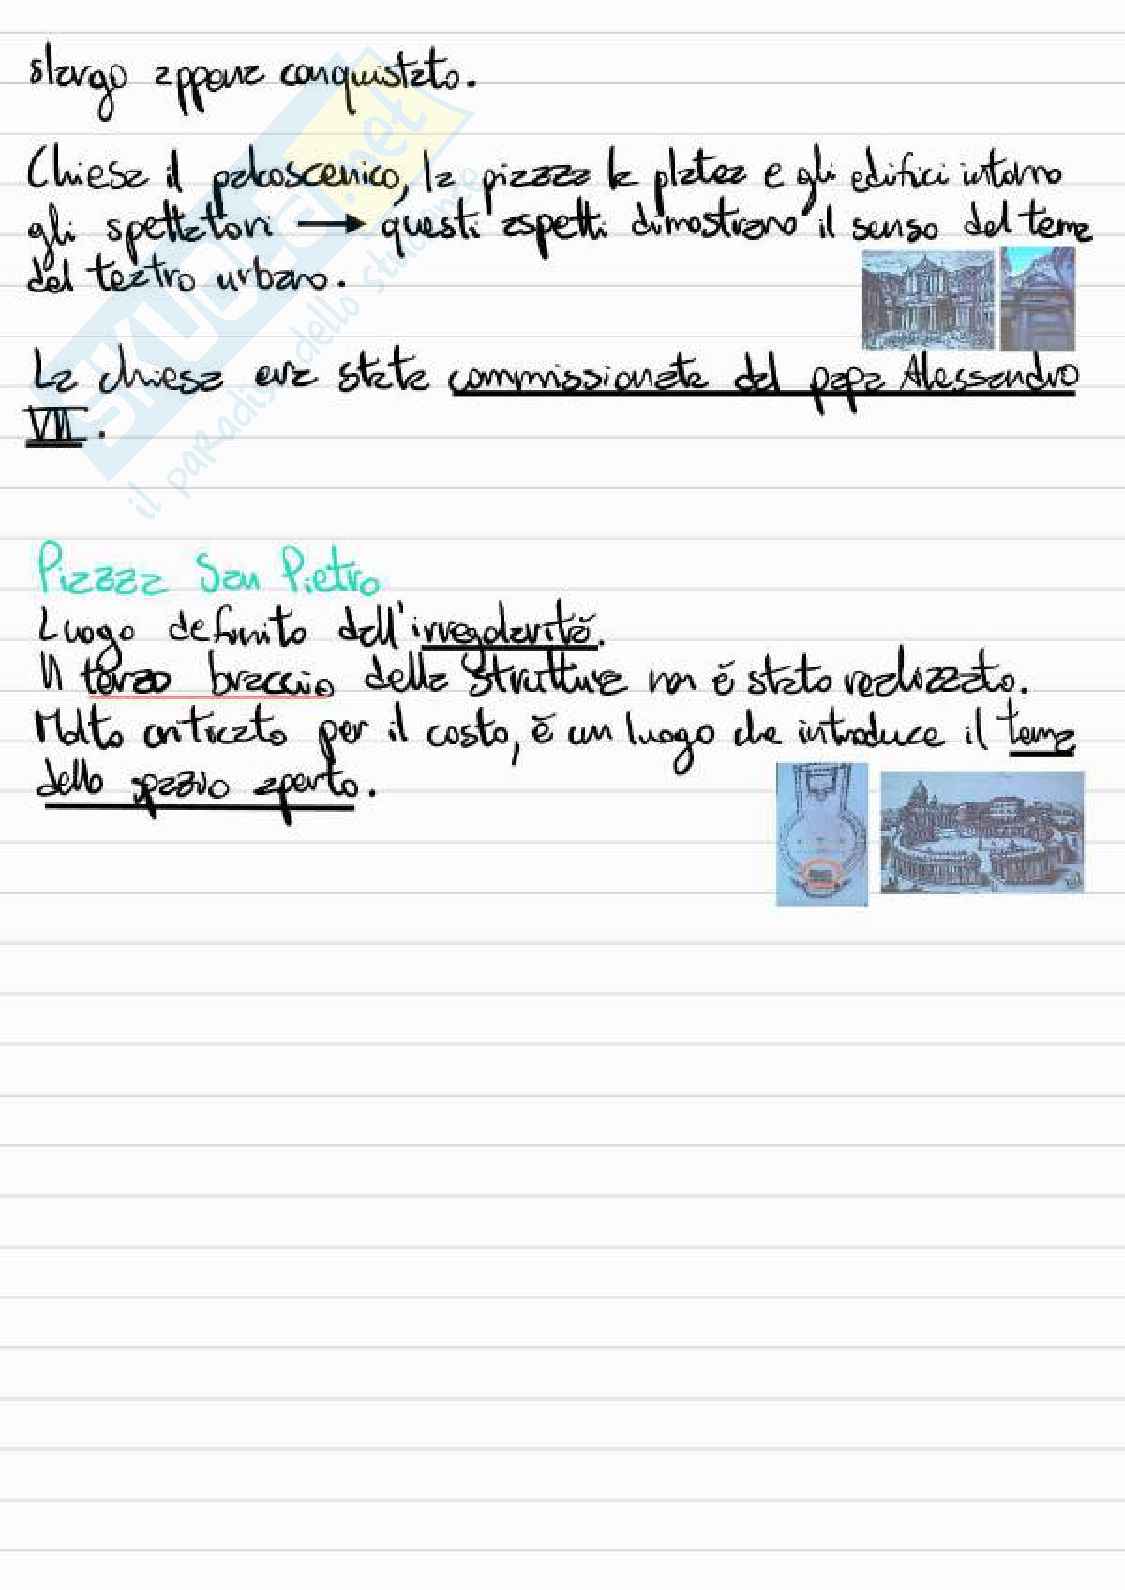 slargo appena conquistato.
Chiesa il palcoscenico, la piazza la platea e gli edifici intorno
gli spettatori → questi aspetti dimostrano il senso del tema
del teatro urbano.
La chiesa era stata commissionata dal papa Alessandro
VII.
Piazza San Pietro
Luogo definito dall'irregolarità.
Il terzo braccio della struttura non è stato realizzato.
Molto criticato per il costo, è un luogo che introduce il tema
dello spazio aperto.
SKUOLA.net
il paradiso dello studente